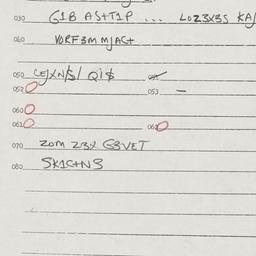 030 G1B AS+T1P ... LOZ3X3S KA
040 VORF3M MJAC+
050 CEJXN/$/ Q1$
052 053 -
060
061 062
070 ZOM Z3X G3VET
080 SK1G+NS